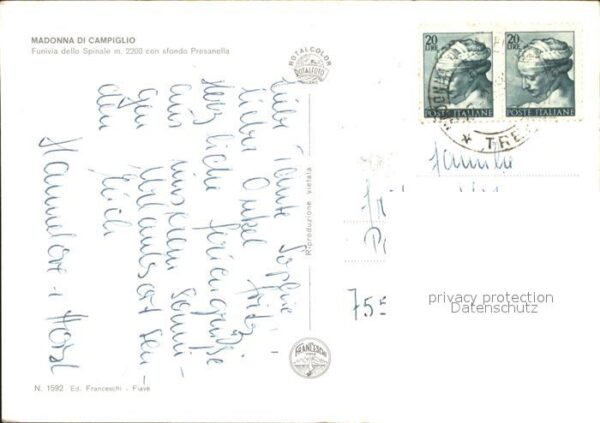 MADONNA DI CAMPIGLIO
Funivia dello Spinale m. 2200 con sfondo Presanella
ROTALCOLOR
ROTALFOTO
MILANO
20
LIRE
POSTE ITALIANE
20
LIRE
POSTE ITALIANE
TRE
Liebe Tante Sophie
lieber Onkel Fritz
herzliche Feriengrüße
aus unserem sonni-
gen Urlaubsort sen-
den Euch
Hannelore + Horst
Riproduzione vietata
Familie
755
privacy protection
Datenschutz
FRANCESCHI
N. 1592 Ed. Franceschi - Fiavè